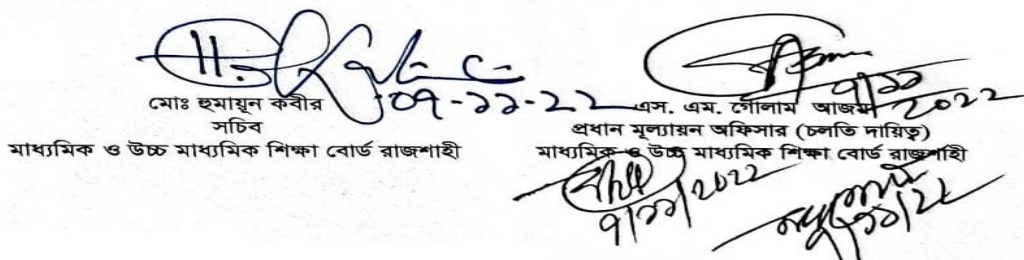 ০৭-১১-২২
মোঃ হুমায়ূন কবীর
সচিব
মাধ্যমিক ও উচ্চ মাধ্যমিক শিক্ষা বোর্ড রাজশাহী
৭/১১
২০২২
এস. এম. গোলাম আজম
প্রধান মূল্যায়ন অফিসার (চলতি দায়িত্ব)
মাধ্যমিক ও উচ্চ মাধ্যমিক শিক্ষা বোর্ড রাজশাহী
৭/১১/২০২২